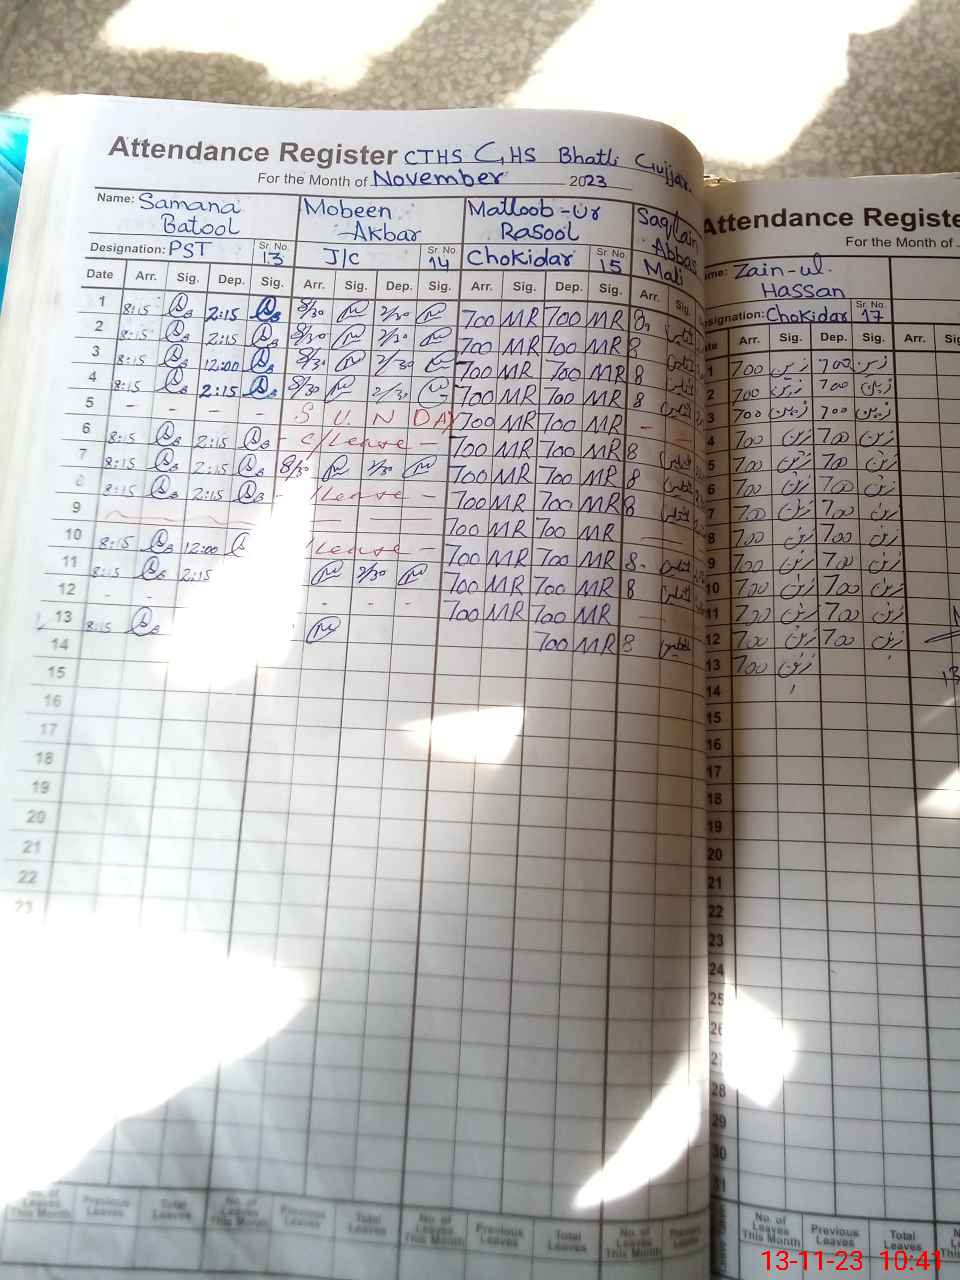 Attendance Register CTHS GHS Bhatli Gujjar.
For the Month of November 2023
Name: Samana Batool
Mobeen Akbar
Matloob-Ur Rasool
Saqlain Abbas
Designation: PST Sr. No. 13
J/C Sr. No. 14
Chokidar Sr. No. 15
Mali
Date Arr. Sig. Dep. Sig. Arr. Sig. Dep. Sig. Arr. Sig. Dep. Sig. Arr. Sig.
1 8:15 2:15 8/30 2/30 700 MR 700 MR 8
2 8:15 2:15 8/30 2/30 700 MR 700 MR 8
3 8:15 12:00 8/30 2/30 700 MR 700 MR 8
4 8:15 2:15 8/30 2/30 700 MR 700 MR 8
5 - - - - S U N DAY 700 MR 700 MR - -
6 8:15 2:15 - C/Leave - 700 MR 700 MR 8
7 8:15 2:15 8/30 2/30 700 MR 700 MR 8
8 8:15 2:15 - /Leave - 700 MR 700 MR 8
9 700 MR 700 MR
10 8:15 12:00 /Leave - 700 MR 700 MR 8
11 8:15 2:15 2/30 700 MR 700 MR 8
12 - - - - - 700 MR 700 MR
13 8:15 700 MR 8
14
15
16
17
18
19
20
21
22
23
No. of Leaves This Month Previous Leaves Total Leaves No. of Leaves This Month Previous Leaves Total Leaves No. of Leaves This Month Previous Leaves Total Leaves No. of Leaves This Month Previous Leaves
Attendance Registe
For the Month of
me: Zain-ul. Hassan
signation: Chokidar Sr. No. 17
te Arr. Sig. Dep. Sig. Arr. Sig
1 700 زین 700 زین
2 700 زین 700 زین
3 700 زین 700 زین
4 700 زین 700 زین
5 700 زین 700 زین
6 700 زین 700 زین
7 700 زین 700 زین
8 700 زین 700 زین
9 700 زین 700 زین
10 700 زین 700 زین
11 700 زین 700 زین
12 700 زین 700 زین
13 700 زین
14
15
16
17
18
19
20
21
22
23
24
25
26
27
28
29
30
31
No. of Leaves This Month Previous Leaves Total Leaves
13-11-23 10:41